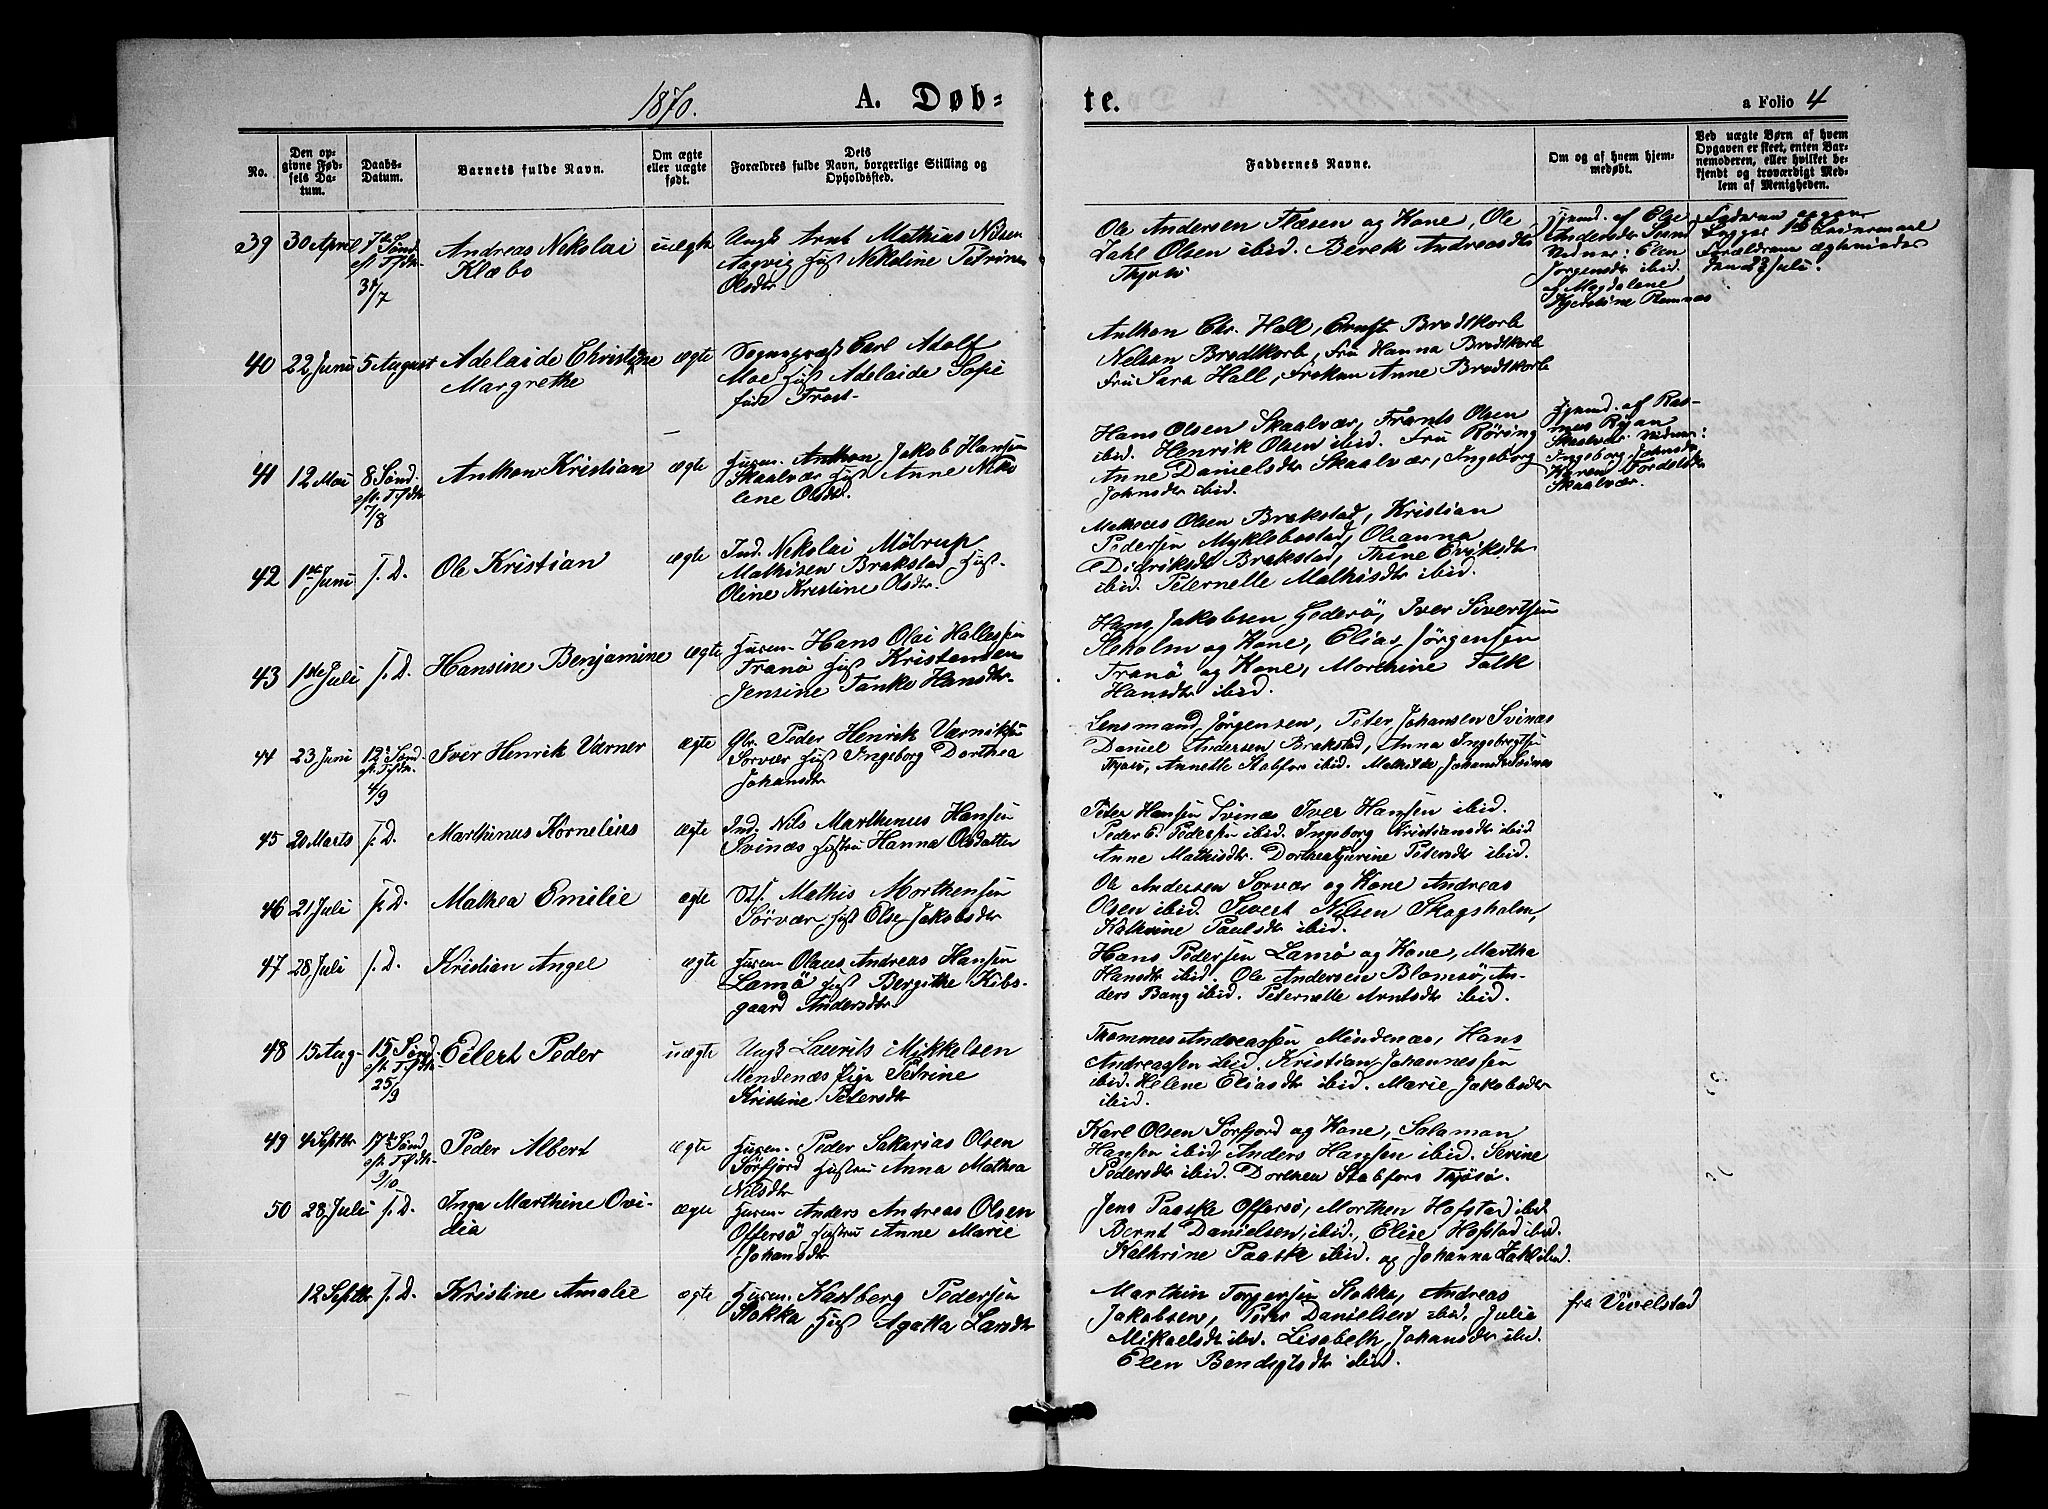 1870.
A. Døb-
te.
a Folio 4
No.
Den op-
givne Fød-
sels Da-
tum.
Daabs-
Datum.
Barnets fulde Navn.
Om ægte
eller uægte
født.
Dets
Forældres fulde Navn, borgerlige Stilling og
Opholdssted.
Faddernes Navne.
Om og af hvem hjem-
medøbt.
Ved uægte Børn af hvem
Opgaven er skeet, enten Bar-
nemoderen, eller hvilket be-
kjendt og troværdigt Med-
lem af Menigheden.
39 30 April 7de Sønd.
eft. Trfdh.
31/7
Andreas Nikolai
Klæbo
uægte
Ungk Arnt Mathias Nilsen
Aagvig Hust Nikoline Petrine
Olsdtr.
Ole Andersen Flæsen og Kone, Ole
Dahl Olsen ibid. Berek Andreasdtr
Thjotø
Hjemd. af Else
Andersdtr
Vidner: Elen
Jørgensdtr ibid.
& Magdalene
Kjerstine Remnæs
Faderen
Lægges 1ste Leiermaal
Forældrene ægteviedes
den 23 Juli.
40 22 Juni 5 August
Adelaide Christine
Margrethe
ægte
Sognepræst Carl Adolf
Moe Hust Adelaide Sofie
født Frost
Anthon Chr. Hall, Ernst Brodtkorb
Nelson Brodtkorb, Fru Hanna Brodtkorb
Fru Sara Hall, Frøken Anne Brodtkorb
41 12 Mai 8 Sønd.
eft. Trfdh.
7/8
Anthon Kristian
ægte
Husm. Anthon Jakob Hansen
Skaalvær Hust Anne Niko
line Olsdtr.
Hans Olsen Skaalvær, Frants Olsen
ibid. Henrik Olsen ibid. Fru Røring
Anne Danielsdtr Skaalvær, Ingeborg
Johnsdtr ibid.
Hjemd. af Ras-
mus Ryan
Skaalvær Vidner:
Ingeborg Johnsdtr
Karen Tordelsk
Skaalvær.
42 1ste Juni s. D.
Ole Kristian
ægte
Ind. Nikolai Møbrup
Mathisen Brakstad, Hust.
Oline Kristine Olsdtr.
Mathias Olsen Brakstad, Kristian
Pedersen Myklebostad, Oleanna
Didriksdtr Brakstad, Trine Eriksdtr
ibid. Peternelle Mathisdtr ibid.
43 1ste Juli s. D.
Hansine Benjamine
ægte
Husm. Hans Olai Hallessen
Tranø Hust Kristense
Jensine Tanke Hansdtr.
Hans Jakobsen Gederø, Iver Sivertsen
Stokolm og Kone, Elias Jørgensen
Tranø og Kone, Morthine Falk
Hansdtr ibid.
44 23 Juni 12te Sønd.
eft. Trfdh.
4/9
Iver Henrik Værner
ægte
Gbr. Peder Henrik Værniksen
Sorvær Hust Ingeborg Dorthea
Johansdtr
Lensmand Jørgensen, Peter Johansen Svinæs
Daniel Andersen Brakstad, Anna Ingebregtsen
Thjotø, Annette Stabfors ibid. Mathilde Johansdtr Svinæs
45 20 Marts s. D.
Marthinus Kornelius
ægte
Ind. Nils Marthinus Hansen
Svinæs Hustru Hanna Olsdatter
Peter Hansen Svinæs Iver Hansen ibid.
Peder E. Pedersen ibid. Ingeborg Kristiansdtr ibid
Anne Mathisdtr. Dorthea Gurine Petersdtr ibid.
46 21 Juli s. D.
Mathea Emilie
ægte
Stf. Mathis Morthensen
Sørvær Hust Else Jakobsdtr
Ole Andersen Sorvær og Kone Andreas
Olsen ibid. Sivert Nilsen Skogsholm,
Kathrine Paulsdtr ibid.
47 28 Juli s. D.
Kristian Angel
ægte
Husm. Olaus Andreas Hansen
Lamø Hust Bergithe Kibs-
gaard Andersdtr
Hans Pedersen Lamø og Kone, Martha
Hansdtr ibid. Ole Andersen Blomsø, An-
ders Bang ibid. Peternelle Arntsdtr ibid.
48 15 Aug. 15 Sønd.
eft. Trfdh.
25/9
Eilert Peder
uægte
Ungk Laurits Mikkelsen
Mindenæs Pige Petrine
Kristine Petersdtr
Thommes Andreassen Mindenæs, Hans
Andreassen ibid. Kristian Johannessen
ibid. Helene Eliasdtr ibid. Marie Jakobsdtr
ibid.
49 4 Septbr 17de Sønd
eft. Trfdh.
9/10
Peder Albert
ægte
Husm. Peder Sakarias Olsen
Sørfjord Hustru Anna Mathea
Nilsdtr
Karl Olsen Sørfjord og Kone, Salamon
Hansen ibid, Anders Hansen ibid. Sevine
Pedersdtr ibid. Dorthea Stabfors Thjotø.
50 28 Juli s. D.
Inga Marthine Ovi-
dia
ægte
Husm. Anders Andreas Olsen
Offersø Hustru Anne Marie
Johansdtr
Jens Paaske Offersø, Morthen Hofstad ibid
Bernt Danielsen, ibid., Elise Hofstad ibid.
Kathrine Paaske ibid. og Johanna Zahl ibid.
12 Septbr s. D.
Kristine Amalie
ægte
Husm. Kastberg Pedersen
Stokka Hust Agatha Larsdtr
Marthin Torgersen Stokka, Andreas
Jakobsen, Peter Danielsen ibid. Julie
Mikaelsdtr ibid. Lisabeth Johansdtr ibid.
Elen Bendigtsdtr ibid.
fra Vivelstad